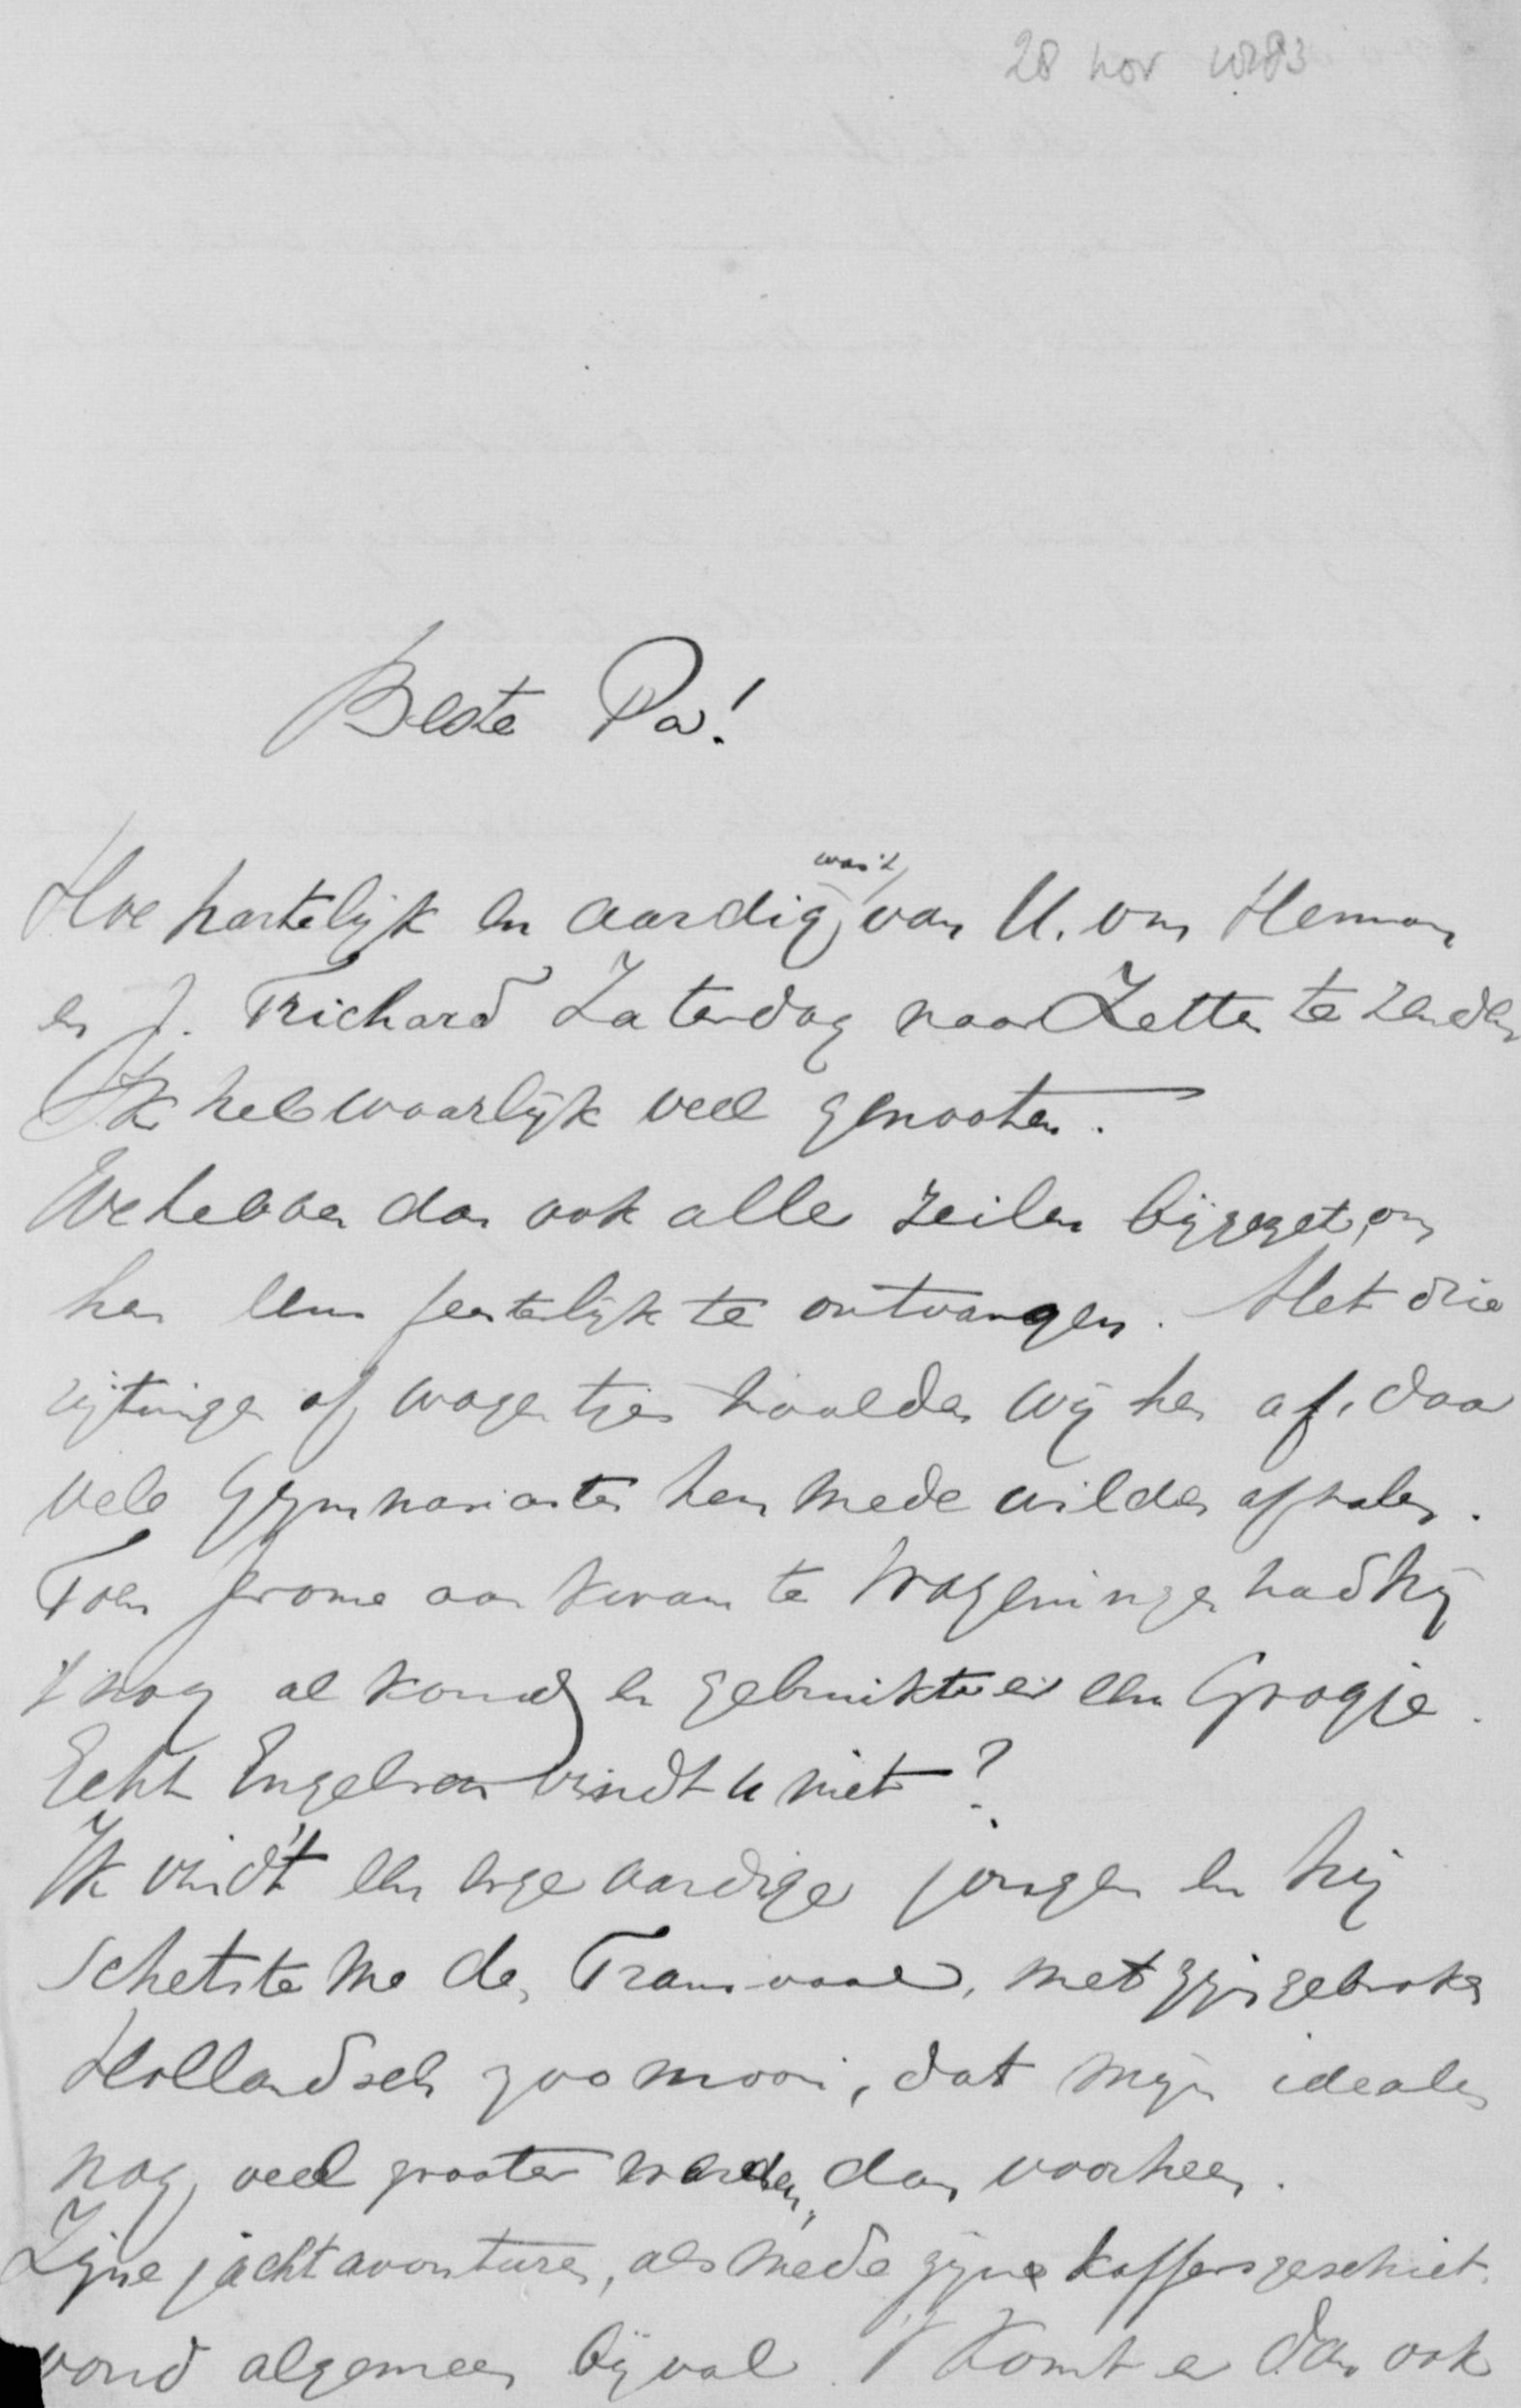 28 nov 1883
Beste Pa!
was 't
Hoe hartelijk en aardig van U. om Herman
en J. Trichard Zaterdag naar Zetten te zenden
Ik heb waarlijk veel genooten.
We hebben dan ook alle zeilen bijgezet, om
hen eens feestelijk te ontvangen. Met drie
rijtuigen of wagentjes haalden wij hen af, daar
vele Gymnasiasten hen mede wilden afhalen.
Toen Jerome aankwam te Wageningen had hij
't nog al koud en gebruikte er een Grogje.
Echt Engelsch vindt u niet?
Ik vind 't een erge aardige jongen en hij
schetste me de Transvaal, met zijn gebroken
Hollandsch zoo mooi, dat mijn idealen
nog veel grooter werden, dan voorheen.
Zijne jachtavonturen, als mede zijne kaffersgeschiet.
vond algemeen bijval. 't Komt er dan ook